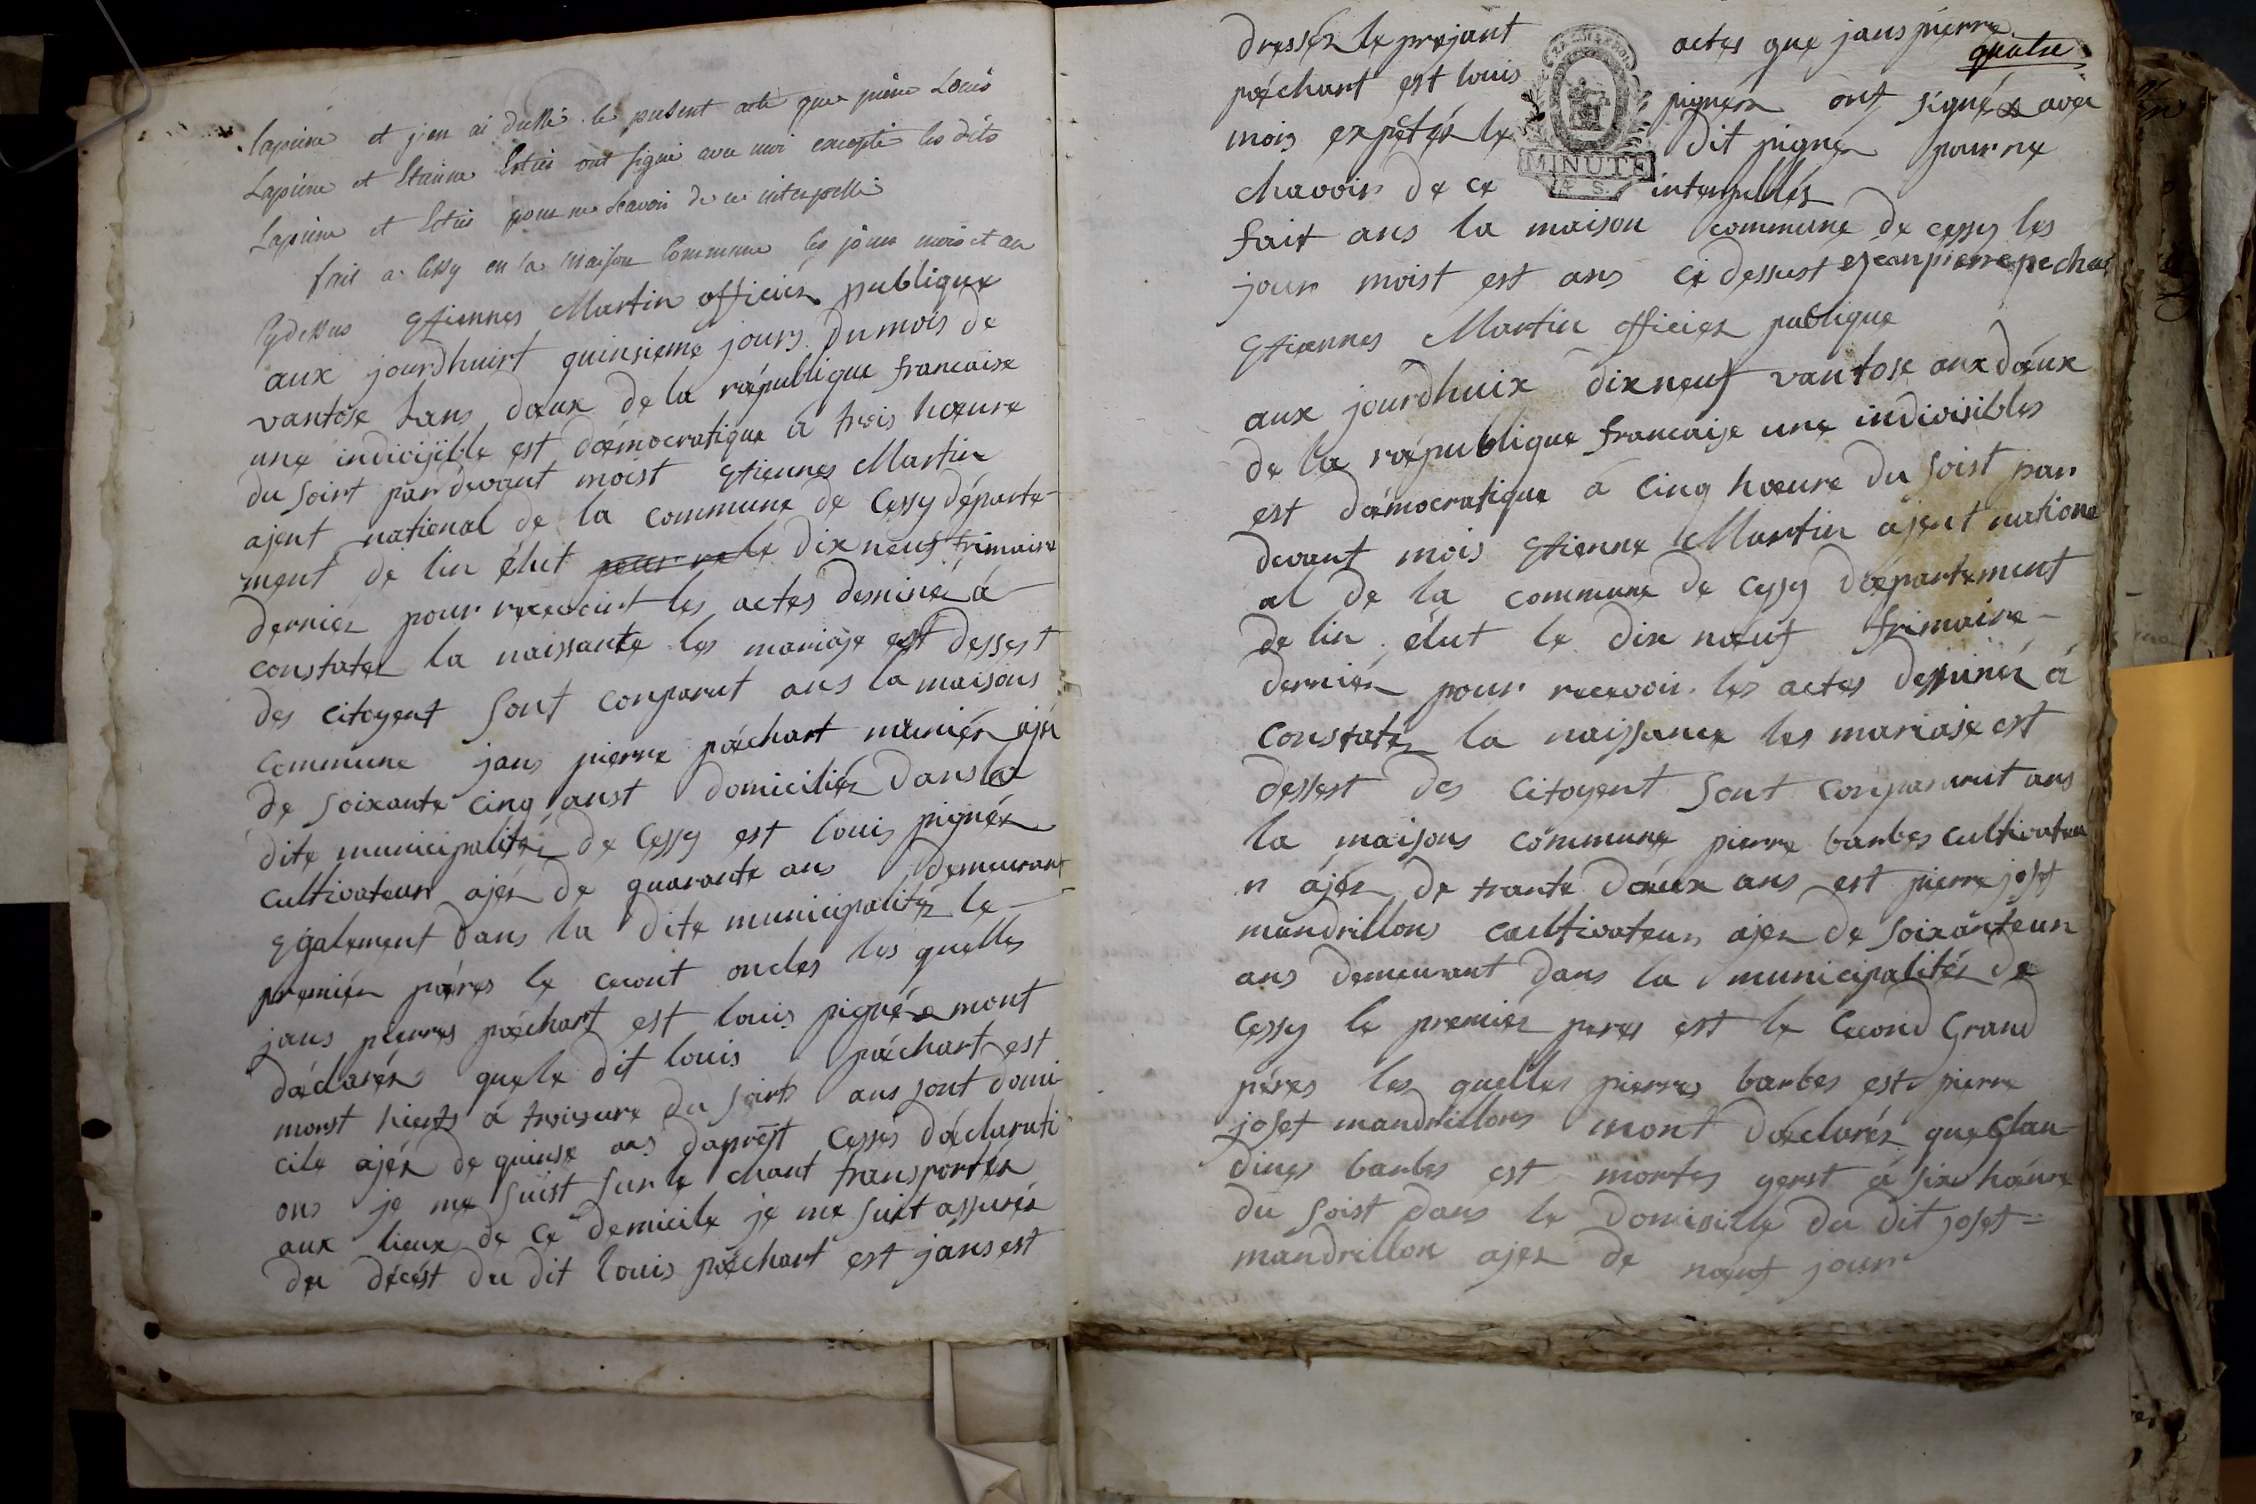 Lapierre et j'en ai dressé le present acte que pierre Louis
Lapierre et Etienne ont signé avec moi excepté les dits
Lapierre et pour ne scavoir de ce interpellé
fait a Cessy en la maison Commune les jour mois et an
Cydessus Etiennes Martin officiér publique
aux jourdhuist quinsieme jours du mois de
vantose Lans doeux de la roépublique francaise
une indicisible est doémocratique à trois hoeure
du soirt par devant moist Etiennes Martin
ajent national de la commune de Cessy départe-
ment de lin élut le dix neuf frimaire
derniér pour recevoirt les actes desinés à
constatér la naissante les mariaje est dessest
des citoyent sont conparut ans la maisons
commune jans pierre poéchart ajér
de soixante cinq anst domiciliér dans la
dite municipalitér de Cessy est louis pignér
cultivateur ajér de quarante ans demeurant
Egalement dans la dite municipalitér le
premiér poéres le ceront oncles les quelles
jans pierres poéchart est louis pignér mont
doéclarér que le dit louis poéchart est
monst hierts à troiseure du soirts ans sont domi
cile ajér de quinse ans daprést cesses doéclarati
ons je me suist sur le chant transportér
aux lieux de ce demicile je me suit assurér
du décést du dit louis poéchart est jans est
dressér le prejant actes que jans pierre
quatre
poéchart est louis pignér ont signér avec
mois expétér le dit pignér pour ne
chavoir de ce interpellér
MINUTE
fait ans la maison commune de cessy les
jour moist est ans ci dessust ejeanpierre pechar
Etiennes Martin officiér publique
aux jourdhuix dix neuf vantose anx doéux
de la roépublique francaise une indivisibles
est doémocratique à cinq hoeure du soist par
devant mois Etienne Martin ajent nationa
al de la commune de cessy doépartement
de lin élut le dix noeuf frimaire
derniér pour recevoir les actes dessinér à
constatér la naissance les mariaje est
dessest des citoyent sont conparurut ans
la maisons commune pierre barbes cultivateu
r ajér de trante doeux ans est pierre joset
mandrillons cultivateur ajer de soixanteun
ans demeurant dans la municipalitér de
cessy le premiér peres est le cecond Grand
péres les quelles pierres barbes est pierre
joset mandrillons mont doéclarér que Clau-
dines barbes est mortes yerst à six hoeure
du soist dans le domicille du dit joset =
mandrillon ajer de noeuf jour